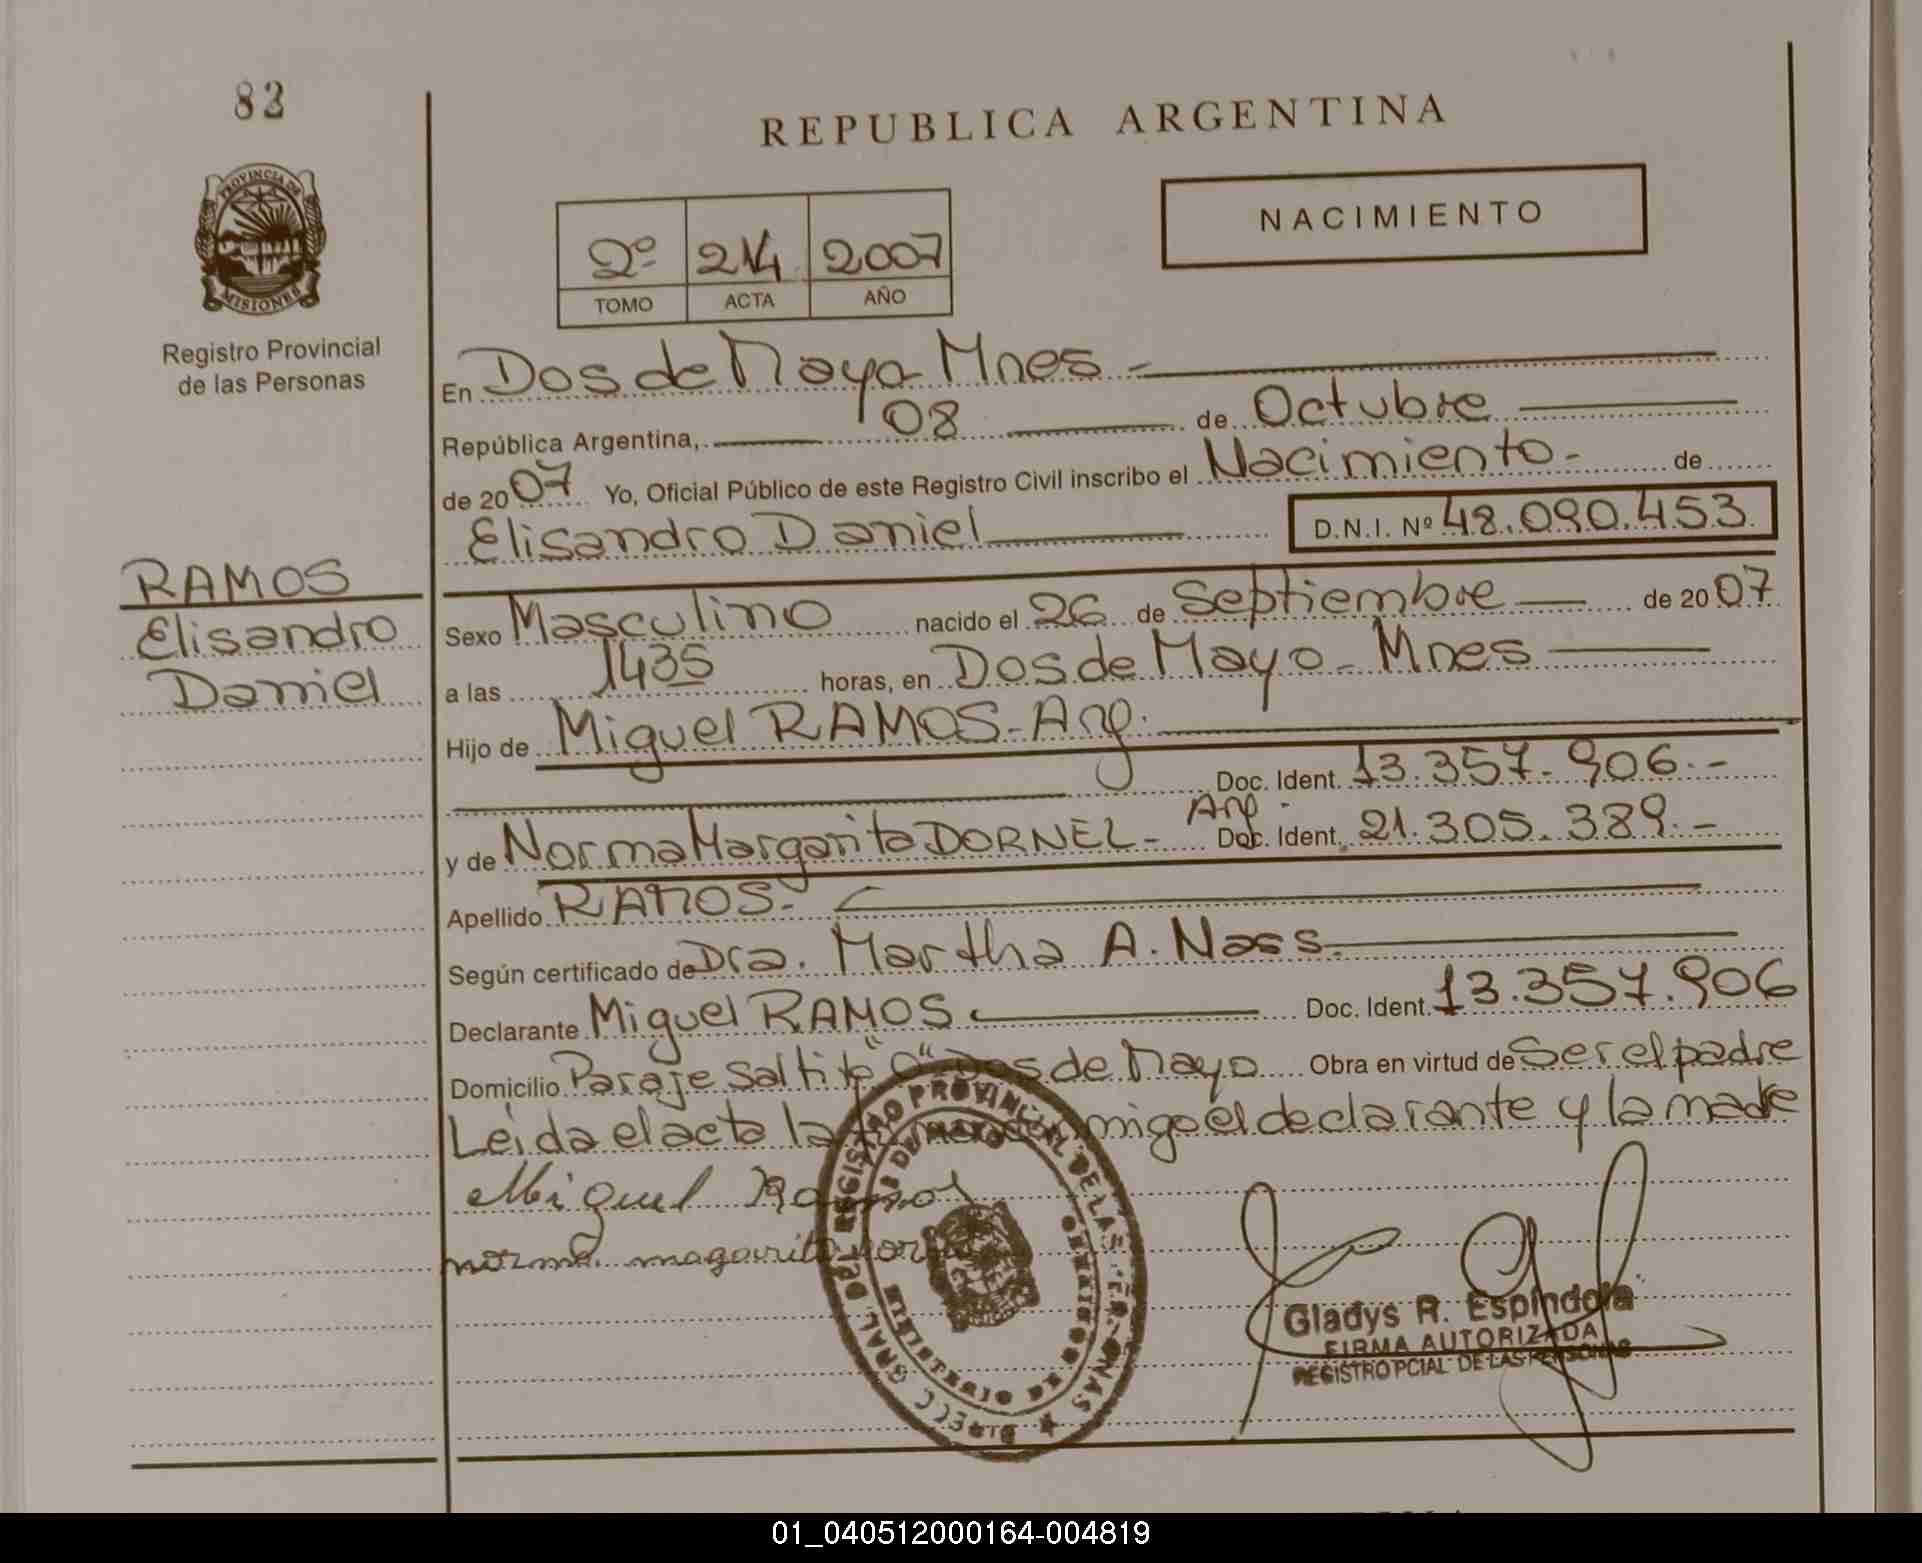 82
REPUBLICA ARGENTINA
PROVINCIA DE
MISIONES
Registro Provincial
de las Personas
NACIMIENTO
2º 214 2007
TOMO ACTA AÑO
En Dos de Mayo Mnes -
República Argentina, 08 de Octubre
de 2007 Yo, Oficial Público de este Registro Civil inscribo el Nacimiento - de
Elisandro Daniel D.N.I. Nº 48.090.453
RAMOS
Elisandro
Daniel
Sexo Masculino nacido el 26 de Septiembre de 2007
a las 1435 horas, en Dos de Mayo - Mnes
Hijo de Miguel RAMOS - Arg.
Doc. Ident. 13.357.906.-
y de Norma Margarita DORNEL - Arg. Doc. Ident. 21.305.389.-
Apellido RAMOS.-
Según certificado de Dra. Martha A. Nass.
Declarante Miguel RAMOS Doc. Ident. 13.357.906
Domicilio Paraje saltito "0" Dos de Mayo Obra en virtud de Ser el padre
Leida el acta la migo el declarante y la madre
Miguel Ramos
norma magarita
DIRECC GRAL DEL REGISTRO PROVINCIAL DE LAS PERSONAS
2 DE MAYO
Gladys R. Espíndola
FIRMA AUTORIZADA
REGISTRO PCIAL DE LAS PERSONAS
01_040512000164-004819